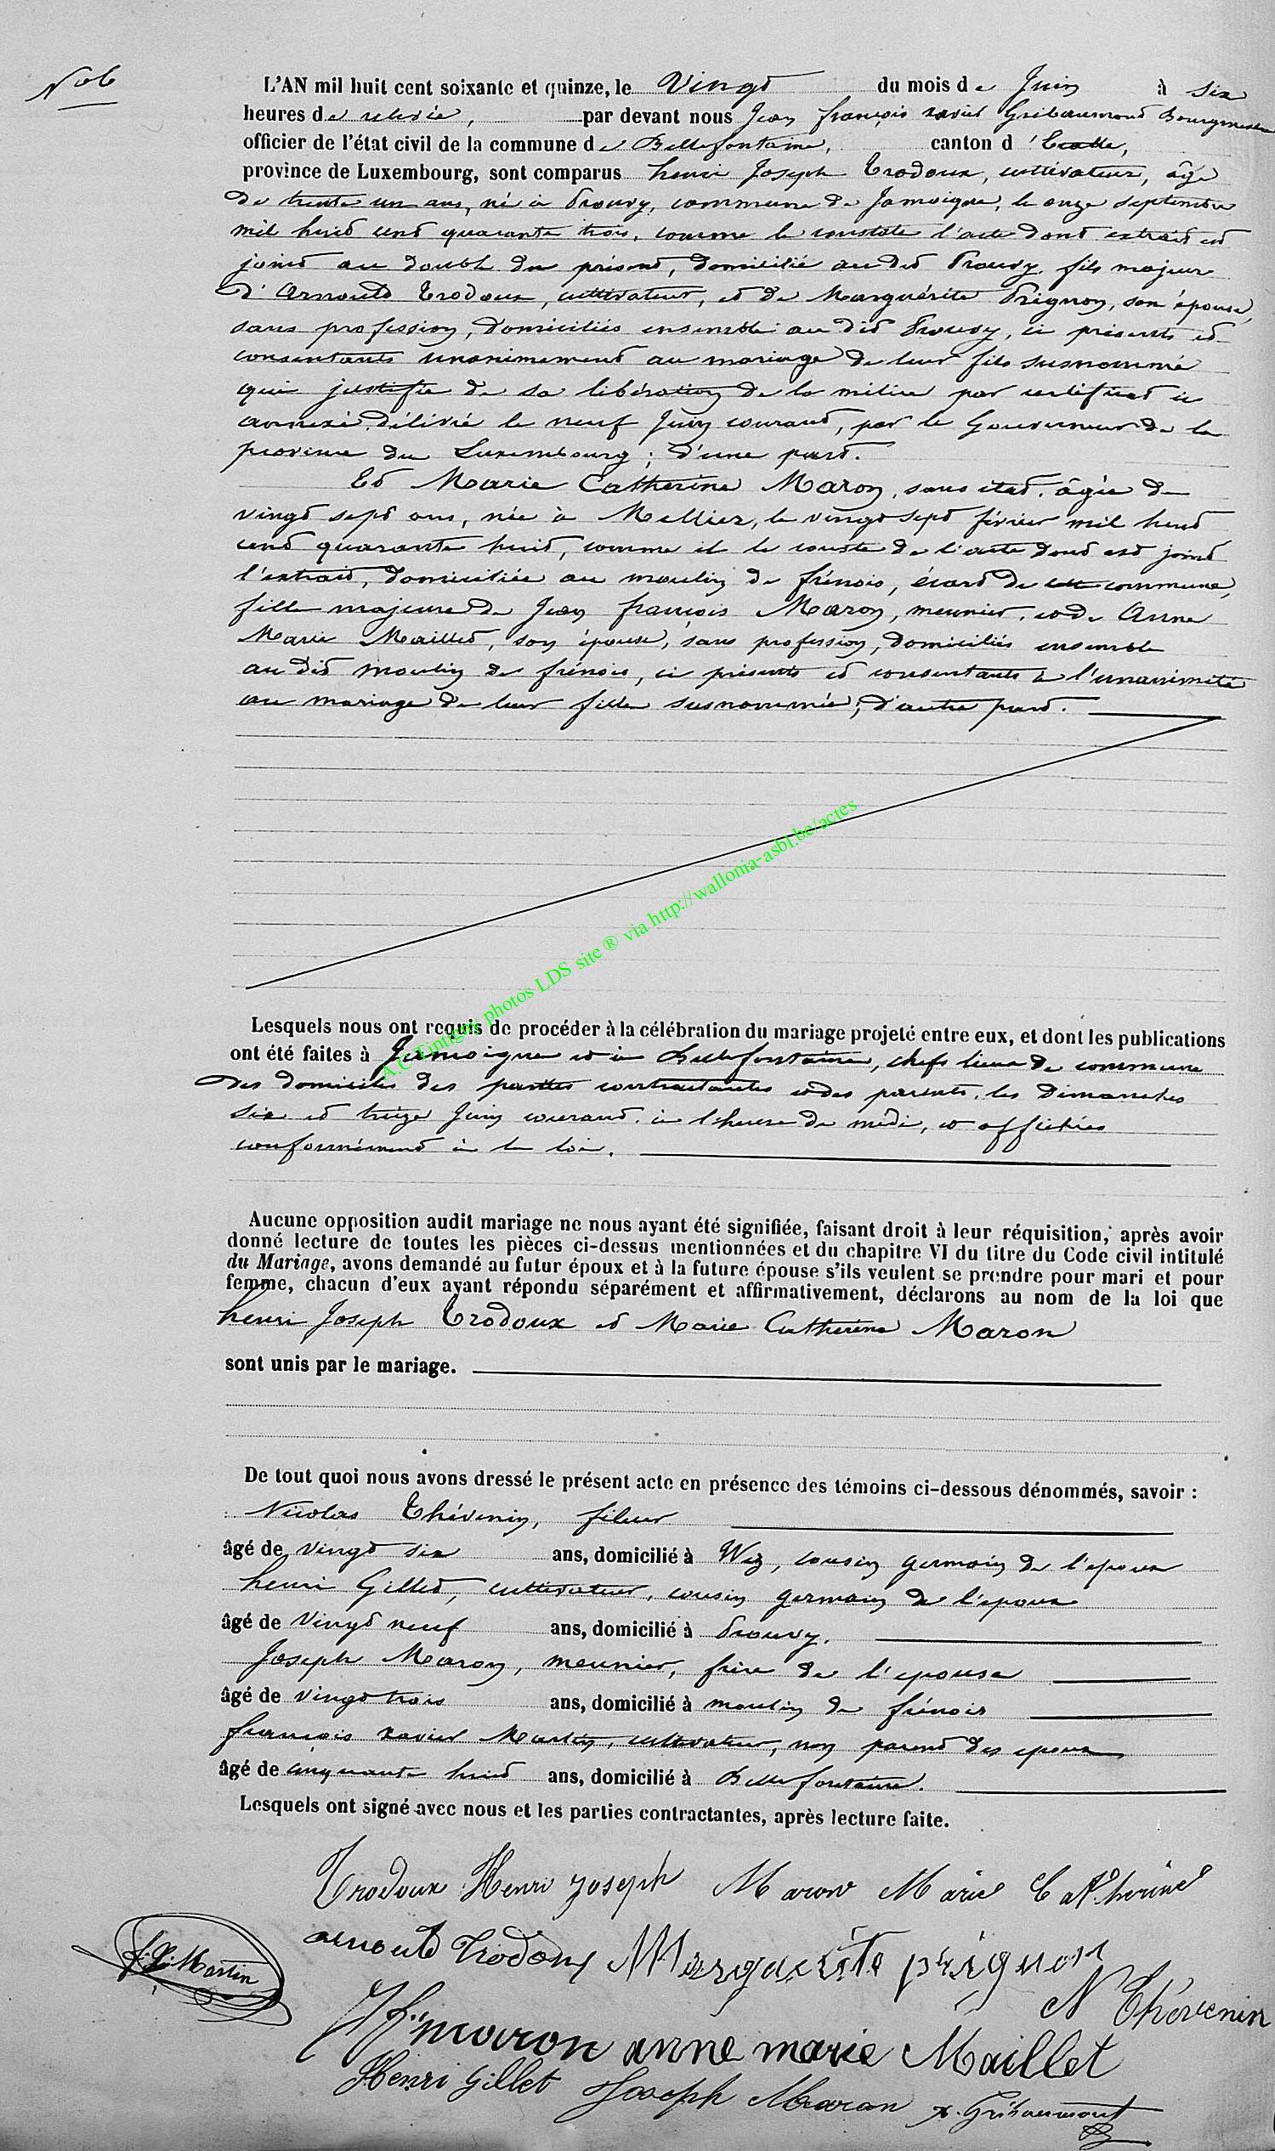 No 6
L'AN mil huit cent soixante et quinze, le Vingt du mois de Juin à six
heures de relevée, par devant nous Jean françois xavier Gribaumont Bourgmestre
officier de l'état civil de la commune de Bellefontaine, canton d'Etalle,
province de Luxembourg, sont comparus henri Joseph Trodoux, cultivateur, âgé
de trente un ans, né à Prouvy, commune de Jamoigne, le onze septembre
mil huit cent quarante trois, comme le constate l'acte dont extrait est
joint au double du présent, domicilié au dit Prouvy, fils majeur
d'Arnould Trodoux, cultivateur, et de Marguérite Prignon, son épouse,
sans profession, domiciliés ensemble au dit Prouvy, ci présents et
consentants unanimement au mariage de leur fils susnommé
qui justifie de sa libération de la milice par certificat ci
annexé, délivré le neuf Juin courant, par le Gouverneur de la
province du Luxembourg ; d'une part.
Et Marie Catherine Maron, sans état, âgée de
vingt sept ans, née à Mellier, le vingt sept février mil huit
cent quarante huit, comme il le conste de l'acte dont est joint
l'extrait, domiciliée au moulin de frénois, écart de cette commune,
fille majeure de Jean françois Maron, meunier, et de Anne
Marie Maillet, son épouse, sans profession, domiciliés ensemble
au dit moulin de frénois, ci présents et consentants à l'unanimité
au mariage de leur fille susnommée ; d'autre part.
A.C. Tintigny photos LDS site ® via http://wallonia-asbl.be/actes
Lesquels nous ont requis de procéder à la célébration du mariage projeté entre eux, et dont les publications
ont été faites à Jamoigne et à Bellefontaine, chefs lieux de commune
des domiciles des parties contractantes et des parents, les dimanches
six et treize Juin courant, à l'heure de midi, et affichées
conformément à la loi.
Aucune opposition audit mariage ne nous ayant été signifiée, faisant droit à leur réquisition, après avoir
donné lecture de toutes les pièces ci-dessus mentionnées et du chapitre VI du titre du Code civil intitulé
du Mariage, avons demandé au futur époux et à la future épouse s'ils veulent se prendre pour mari et pour
femme, chacun d'eux ayant répondu séparément et affirmativement, déclarons au nom de la loi que
henri Joseph Trodoux et Marie Catherine Maron
sont unis par le mariage.
De tout quoi nous avons dressé le présent acte en présence des témoins ci-dessous dénommés, savoir :
Nicolas Thévenin, fileur
âgé de vingt six ans, domicilié à Wez, cousin germain de l'époux
henri Gillet, cultivateur, cousin germain de l'époux
âgé de Vingt neuf ans, domicilié à Prouvy.
Joseph Maron, meunier, frère de l'épouse
âgé de vingt trois ans, domicilié à moulin de frénois
françois xavier Martin, cultivateur, non parent des époux
âgé de cinquante huit ans, domicilié à Bellefontaine.
Lesquels ont signé avec nous et les parties contractantes, après lecture faite.
Trodoux Henri Joseph Maron Marie Catherine
arnould Trodoux Marguerite prignon
f. X. Martin
N Thévenin
J f. maron anne marie Maillet
Henri Gillet Joseph Maron x. Gribaumont